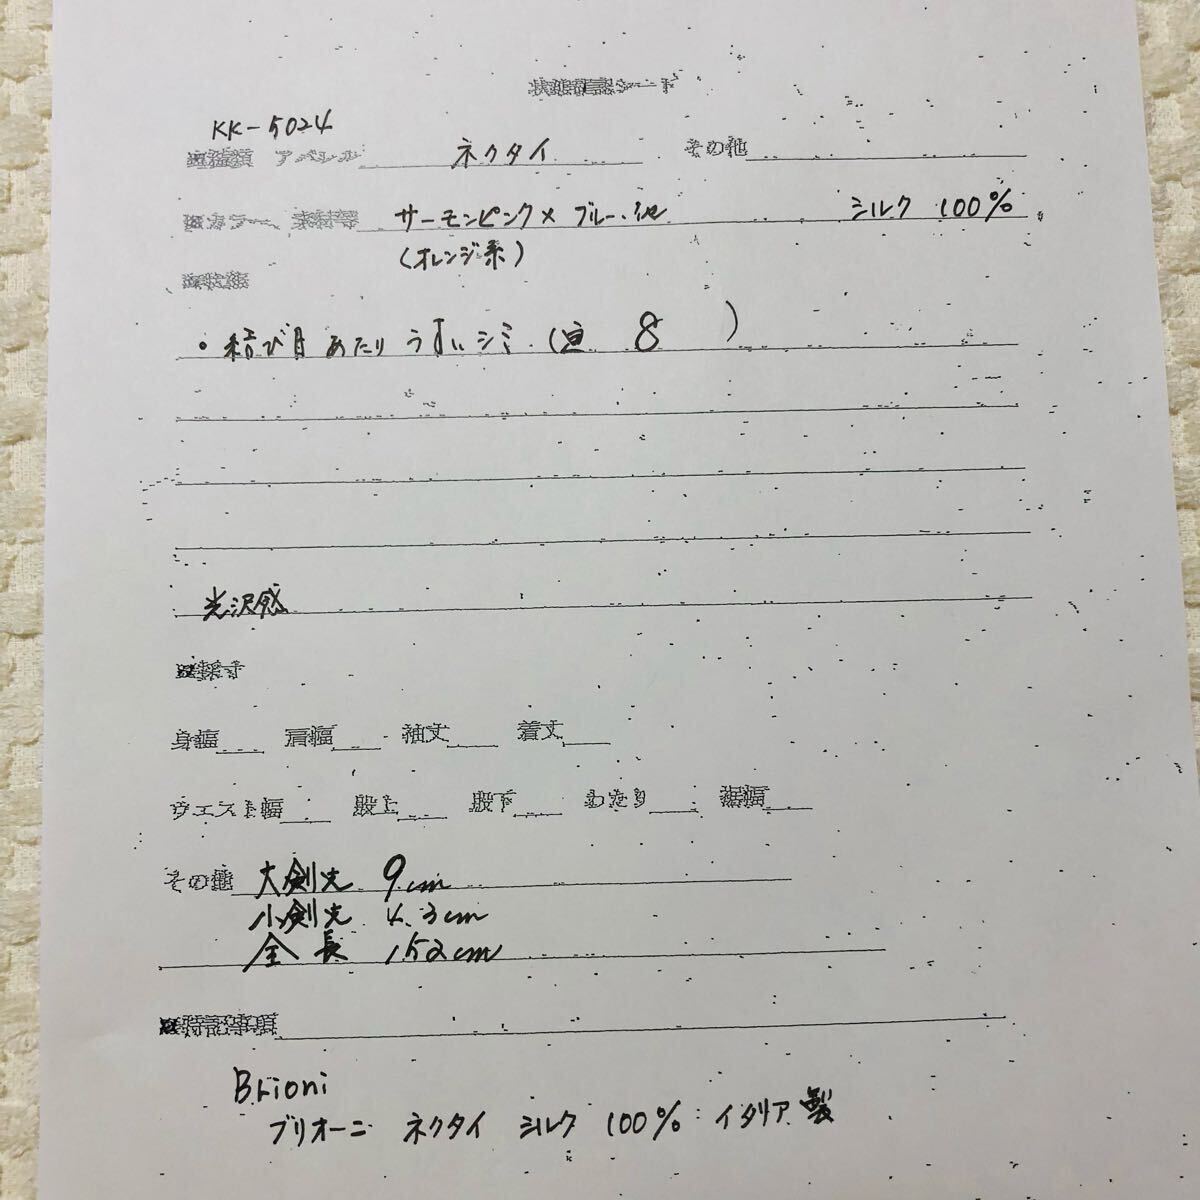 状態確認シート
KK-5024
■種類 アパレル ネクタイ その他
■カラー、素材等 サーモンピンク×ブルー、他 シルク 100%
(オレンジ系)
■状態
・結び目あたり うすいシミ (画 8 )
光沢感
■採寸
身幅 肩幅 袖丈 着丈
ウエスト幅 股上 股下 わたり 裾幅
その他 大剣先 9cm
小剣先 4.3cm
全長 152cm
■特記事項
Brioni
ブリオーニ ネクタイ シルク 100% イタリア製